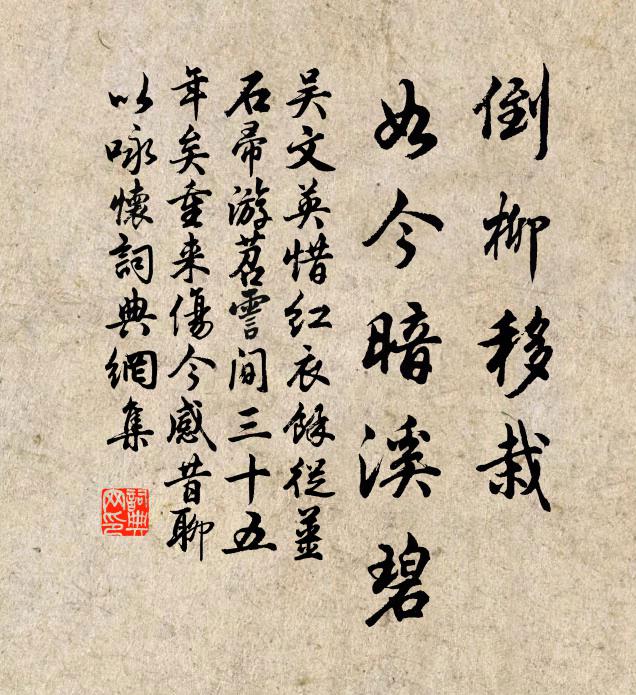 倒柳移栽
如今暗溪碧
吴文英惜红衣餘従薑
石帚游苕霅间三十五
年矣重来傷今感昔聊
以咏懷詞典網集
詞典网印